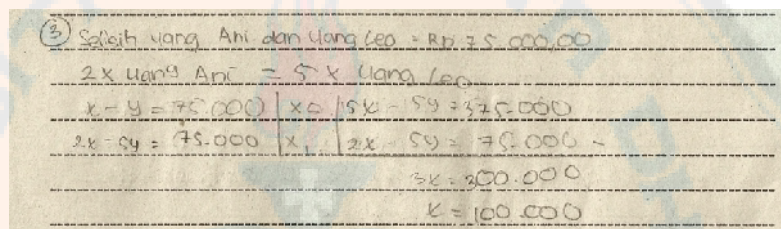 ③ Selisih uang Ani dan uang Leo = Rp 75.000,00
2x uang Ani = 5 x uang Leo
x - y = 75.000 | x5 | 5x - 5y = 375.000
2x - 5y = 75.000 | x1 | 2x - 5y = 75.000 -
3x = 300.000
x = 100.000